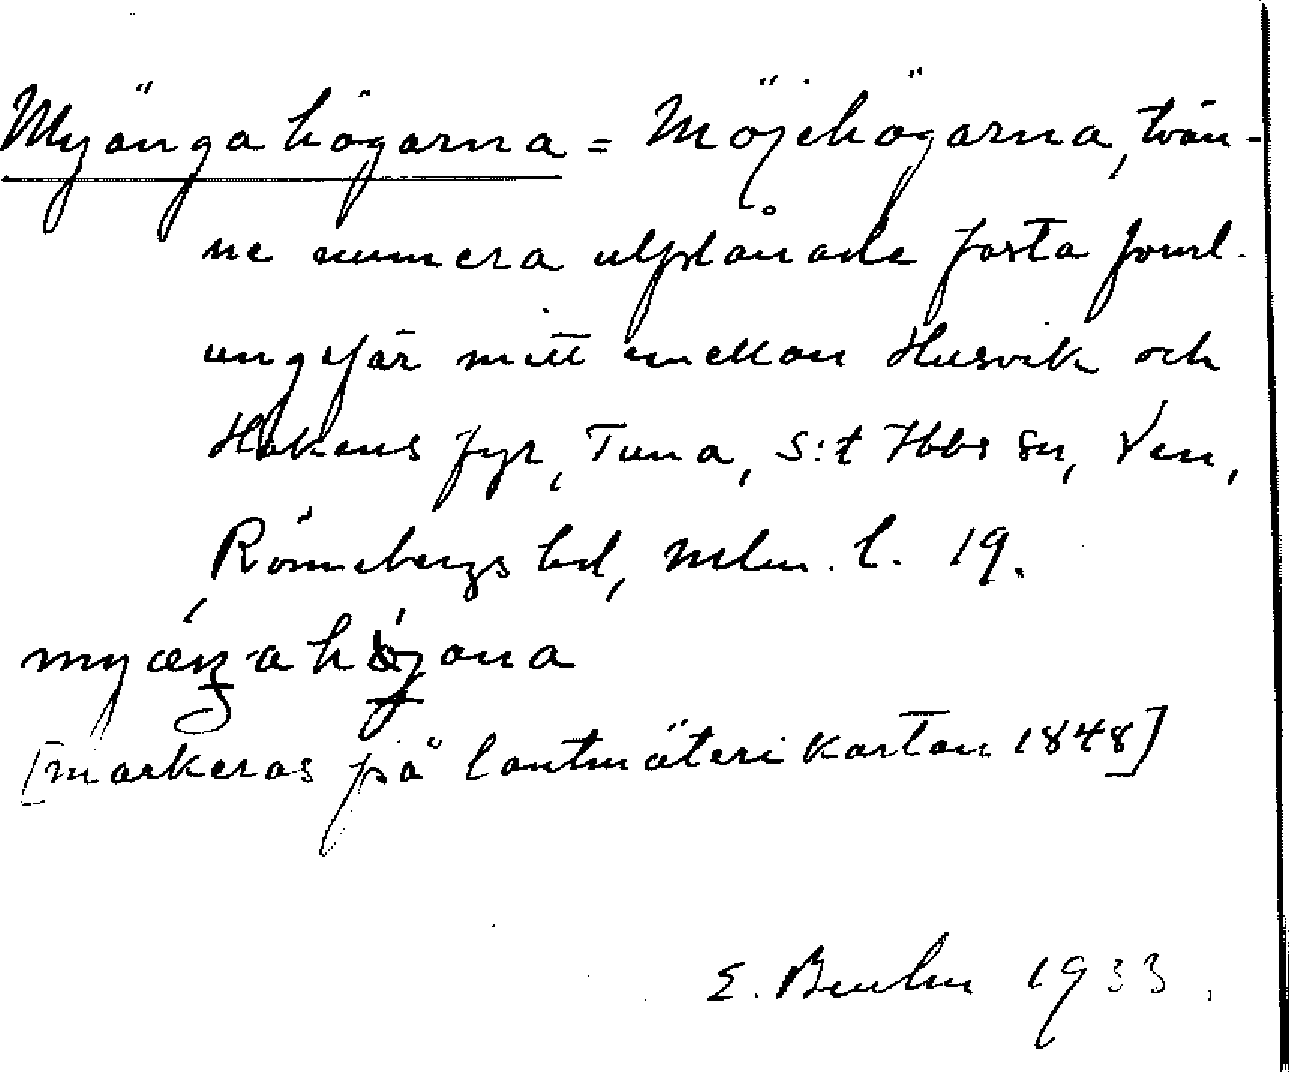 Myängahögarna = Möjehögarna, tvän-
ne numera utplånade fasta fornl.
ungefär mitt emellan Husvik och
Hakens fyr, Tuna, S:t Ibbs sn, Ven,
Rönnebergs hd, Mlm. l. 19.
[markeras på lantmäterikartan 1848]
E. 1933.